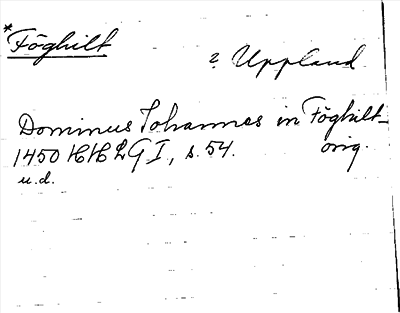 *Föghilt
? Uppland
Dominus Johannes in Föghilt_
1450 HHLG I, s. 54. orig.
u.d.